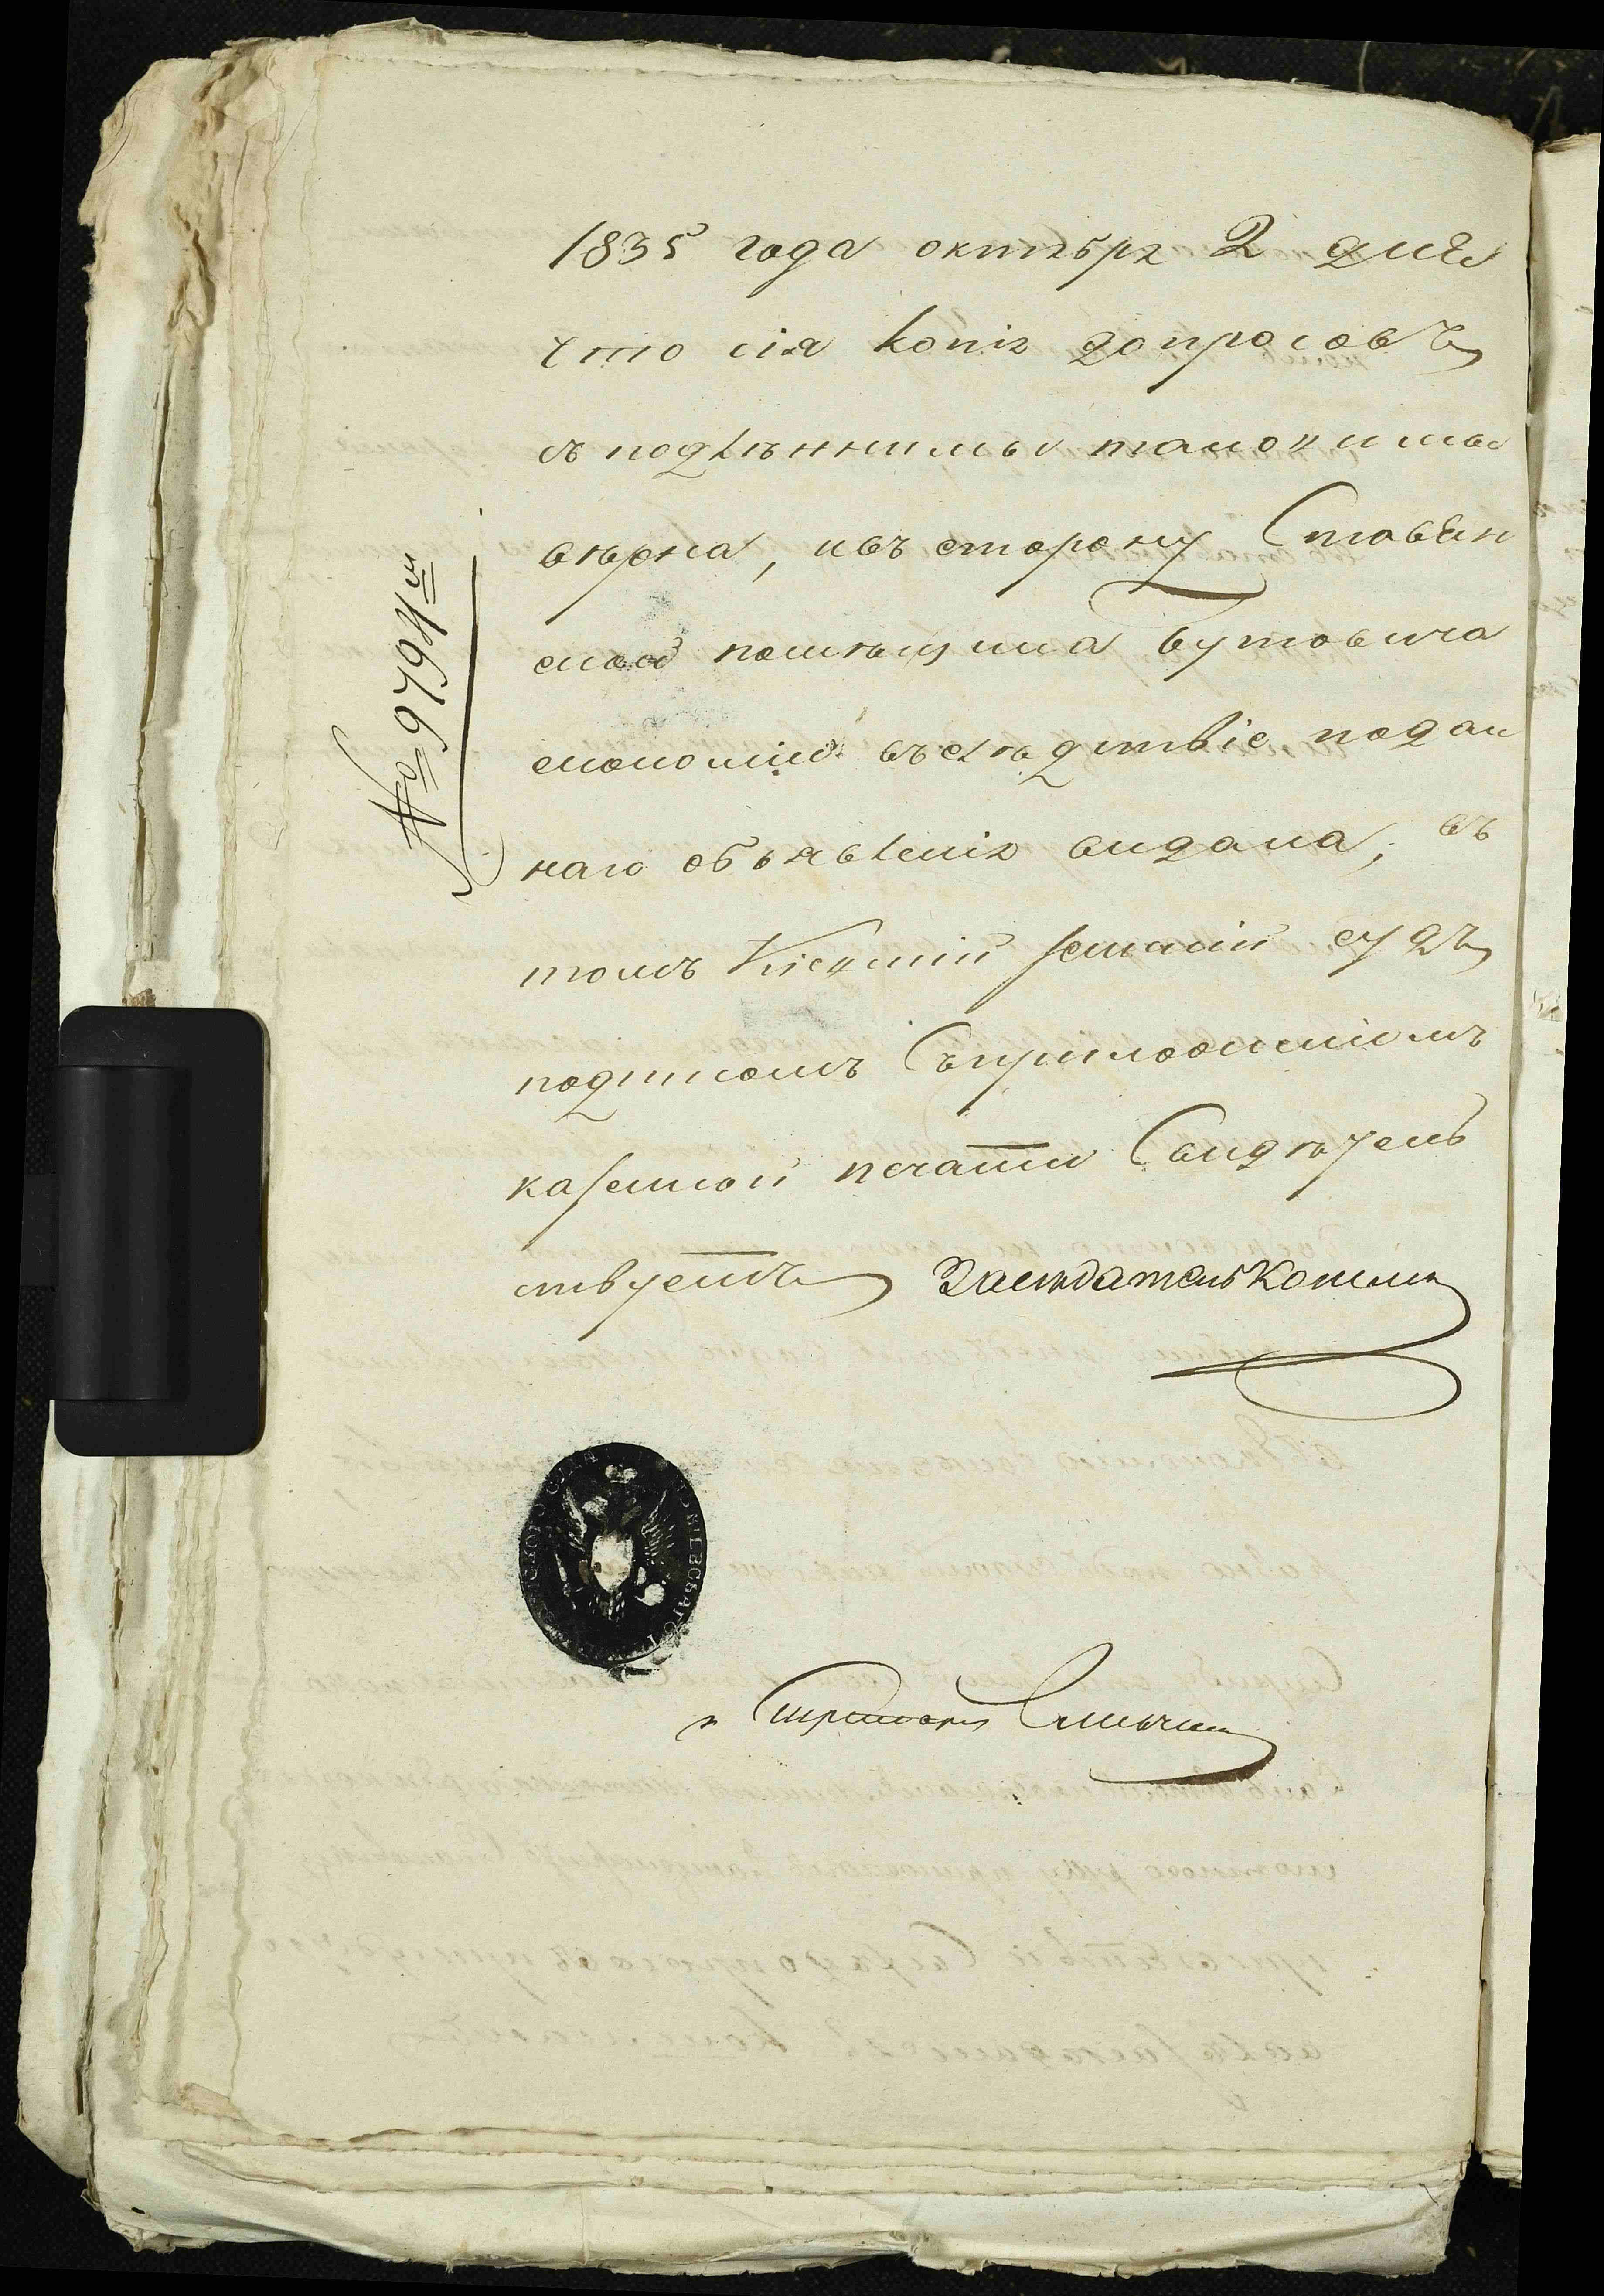 1835 года октября 2 дня
что сія копія допросовъ
съ подлѣнними такокими
вѣрна, и въ сторону Ставян
ской помѣщика Бутовича
економіи въ слѣдствіе подан
наго объявленія видана, въ
томъ Кіевскій земскій судъ
подписомъ съ приложеніемъ
казенной печати свидѣтель
ствуетъ Засѣдатель
№ 9794й